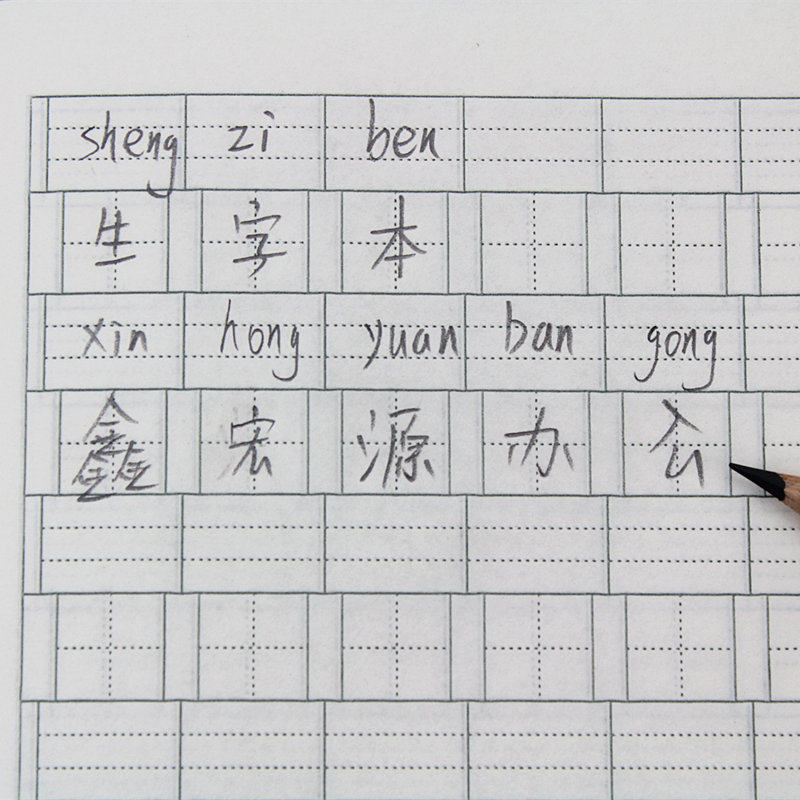 sheng zi ben
生字本
xin hong yuan ban gong
鑫宏源办公